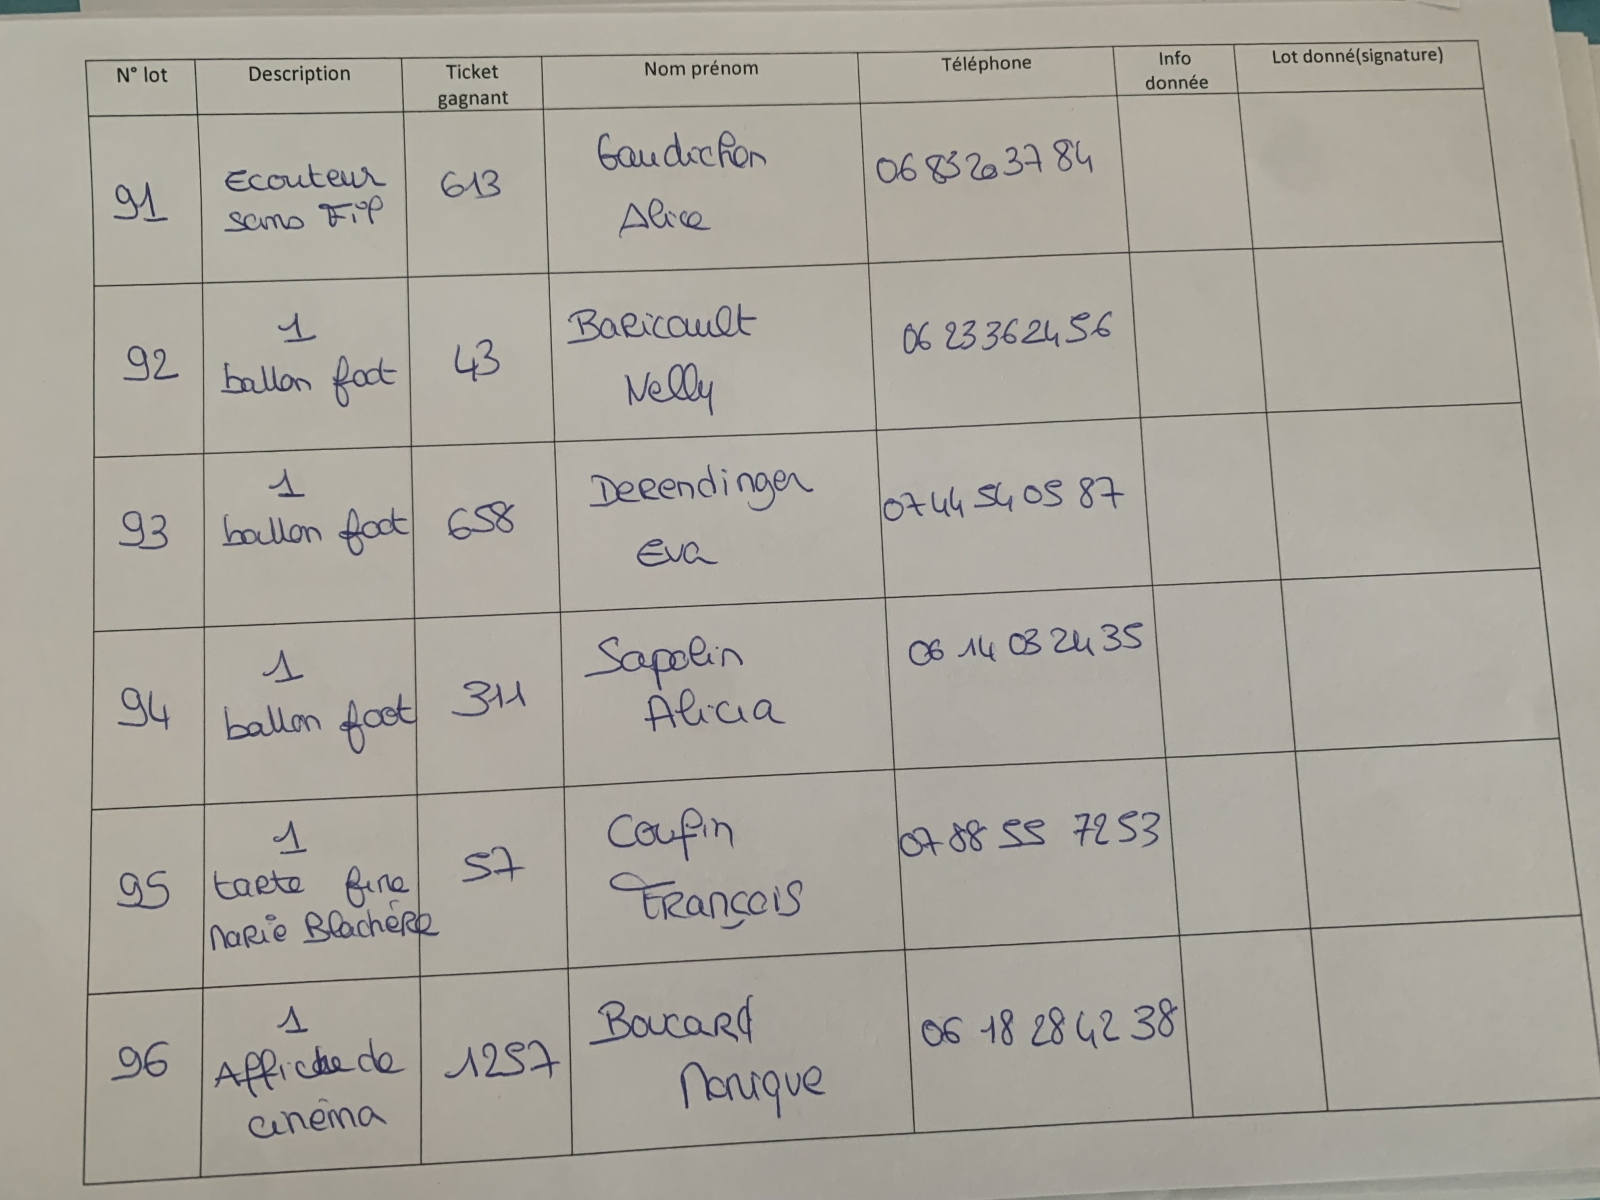 N° lot Description Ticket gagnant Nom prénom Téléphone Info donnée Lot donné(signature)
91 Ecouteur sans Fil 613 Gaudichon Alice 06 83 20 37 84
92 1 ballon foot 43 Baricault Nelly 06 23 36 24 56
93 1 ballon foot 658 Derendinger Eva 07 44 54 05 87
94 1 ballon foot 311 Sapolin Alicia 06 14 03 24 35
95 1 tarte fine Marie Blachère 57 Coufin François 07 88 55 72 53
96 1 Affiche de cinéma 1257 Boucard Monique 06 18 28 42 38